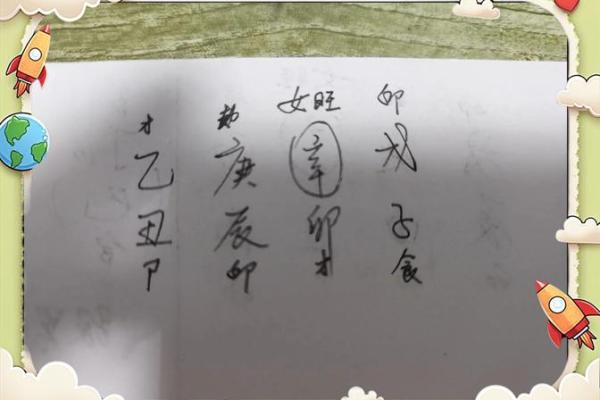 才 劫 女旺 印
乙 庚 辛 戊
丑 辰 卯 子
卩 印 才 食